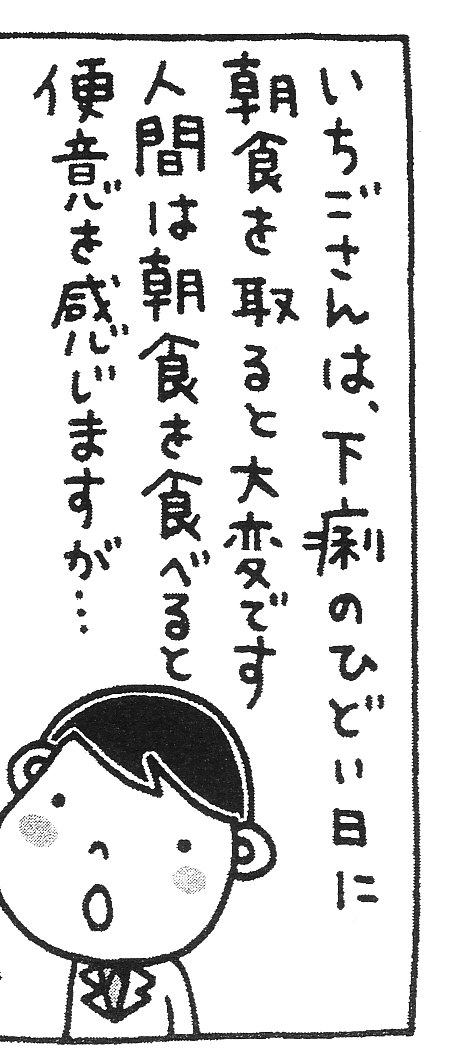 いちごさんは、下痢のひどい日に
朝食を取ると大変です
人間は朝食を食べると
便意を感じますが…